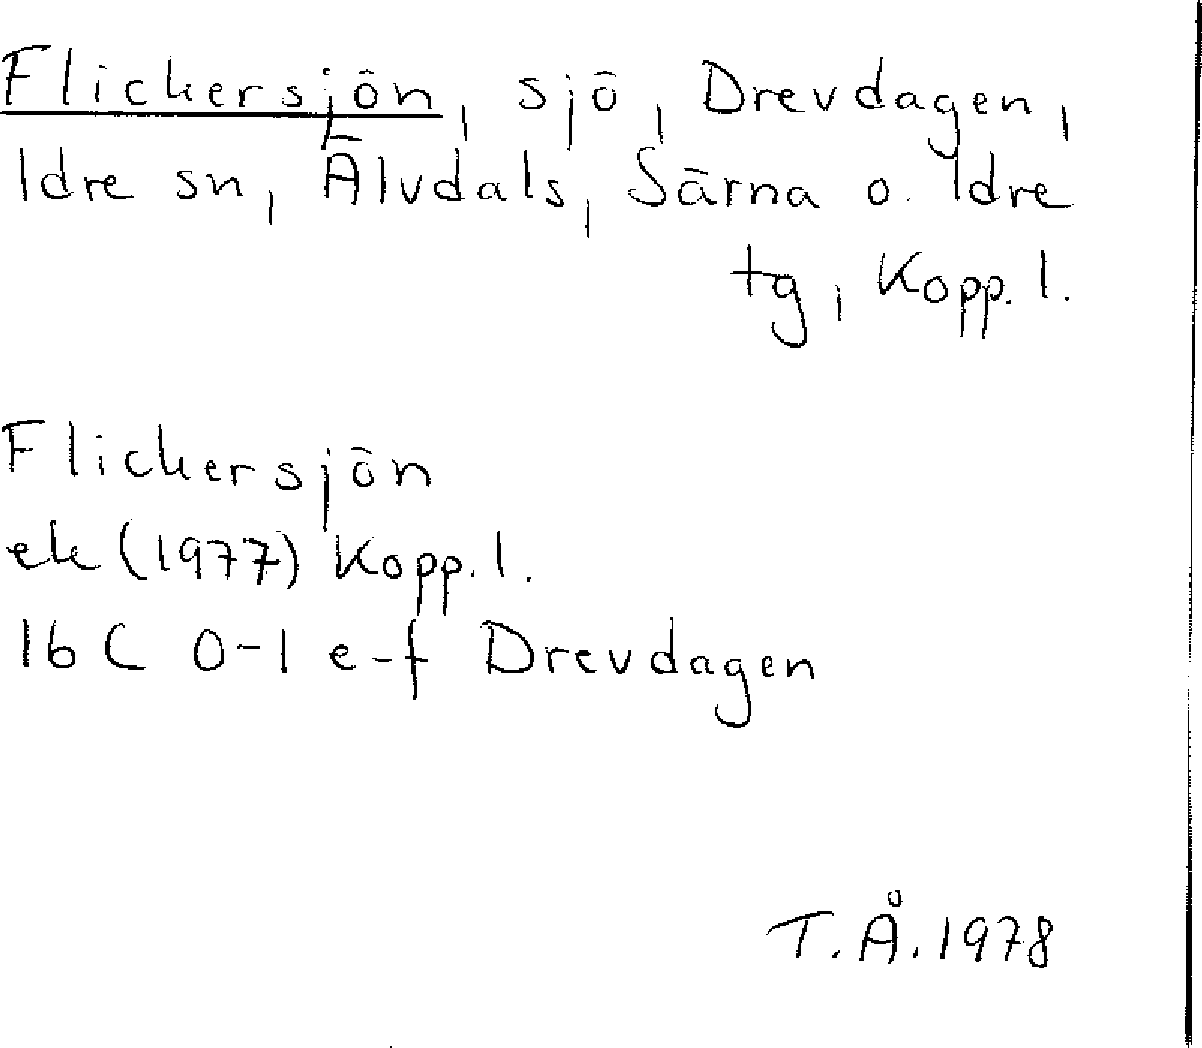 Flickersjön, sjö, Drevdagen,
Idre sn, Älvdals, Särna o. Idre
tg, Kopp. l.
Flickersjön
ek (1977) Kopp. l.
16 C 0-1 e-f Drevdagen
T. Å. 1978